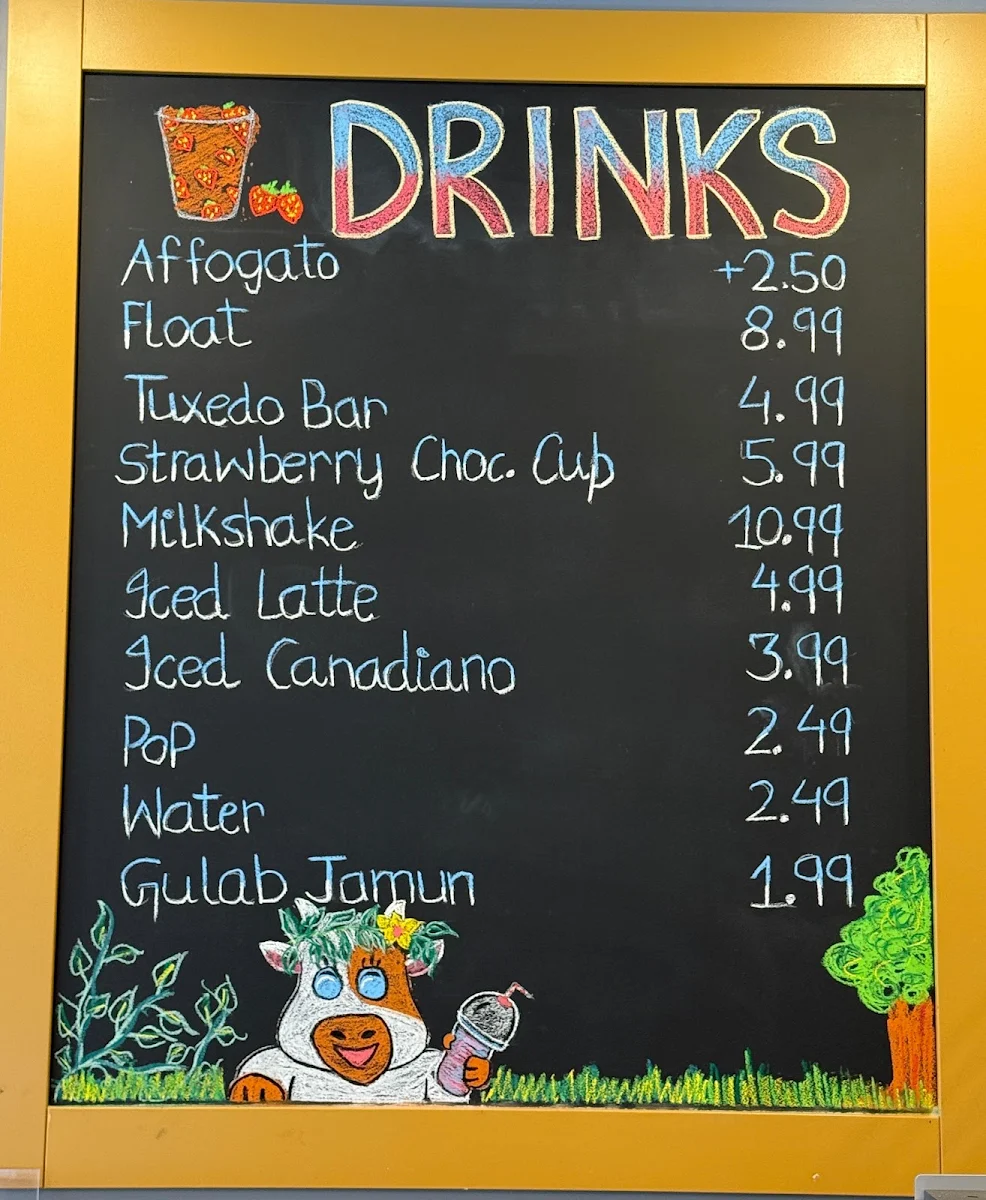 DRINKS
Affogato +2.50
Float 8.99
Tuxedo Bar 4.99
Strawberry Choc. Cup 5.99
Milkshake 10.99
Iced Latte 4.99
Iced Canadiano 3.99
Pop 2.49
Water 2.49
Gulab Jamun 1.99